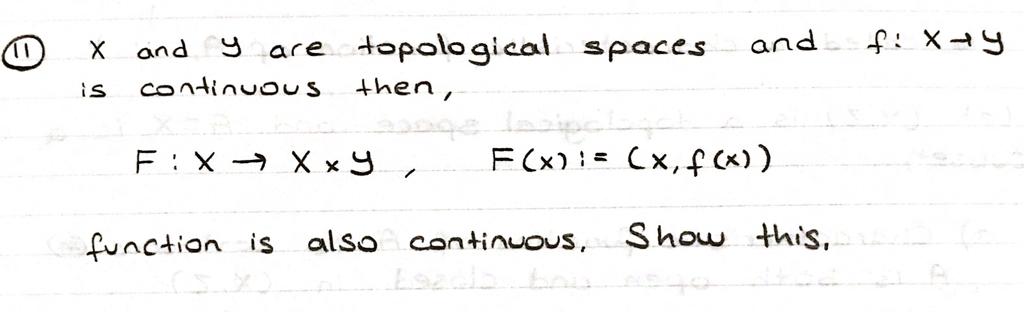 11 X and Y are topological spaces and f: X→Y
is continuous then,
F : X → X x Y , F(x) := (x, f(x))
function is also continuous. Show this.